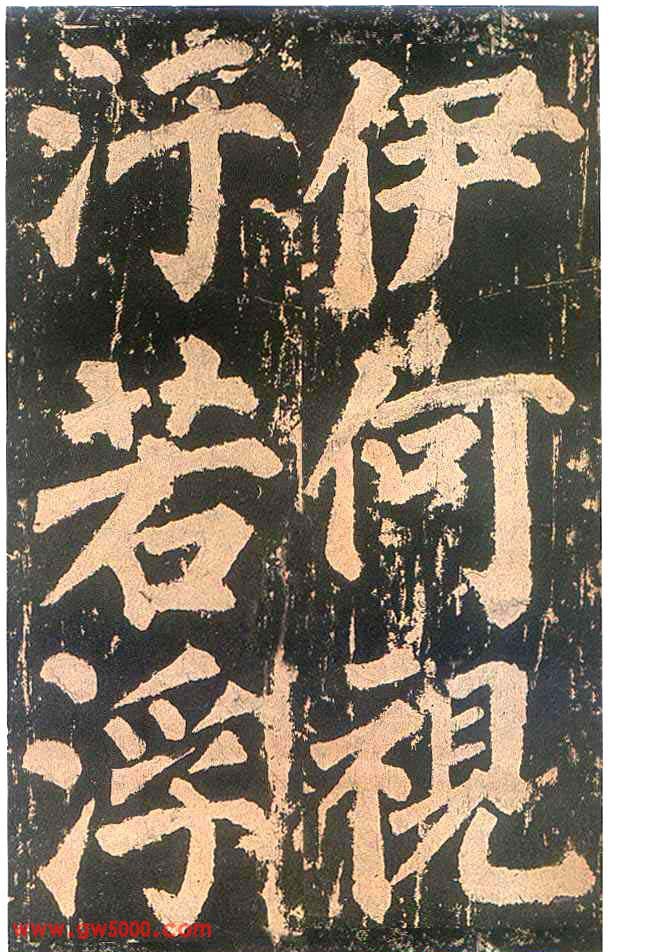 伊何視
汙若浮
www.gw5000.com